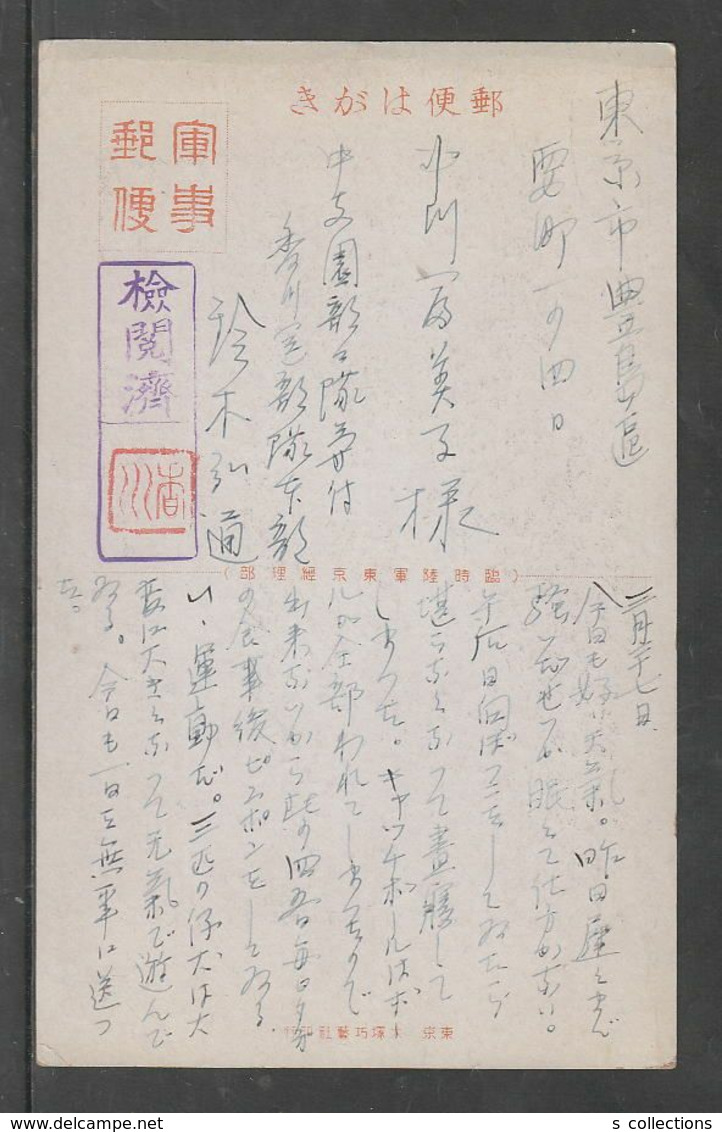 郵便はがき
軍事
郵便
檢閲濟
香川
東京市豊島區
要町一の四日
中川富美子様
中支園部部隊気付
香川定部隊本部
鈴木弘道
(臨時陸軍東京經理部)
二月二十七日
今日も好い天気。昨日
騒いだせいか眠くて仕方がない。
午后日向ぼつこをしてゐたら
堪らなくなつて晝寝して
しまつた。キャッチボールはボー
ルが全部われてしまつたので
出来ないから此の四五日毎日夕方
の食事後ピンポンをしてゐる。
いゝ運動だ。三匹の仔犬は大
変に大きくなつて元気で遊んで
ゐる。今日も一日を無事に送つ
た。
東京 大塚巧藝社印行
s collections